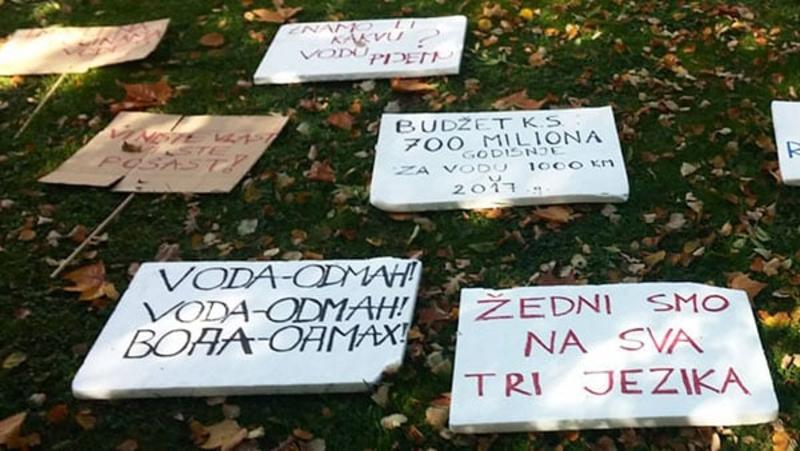 ZNAMO LI
KAKVU ?
VODU PIJEMO
VI NISTE VLAST
STE
POŠAST!
BUDŽET K.S.
700 MILIONA
GODIŠNJE
ZA VODU 1000 KM
U
2017...
VODA-ODMAH!
VODA-ODMAH!
ВОДА-ОДМАХ!
ŽEDNI SMO
NA SVA
TRI JEZIKA